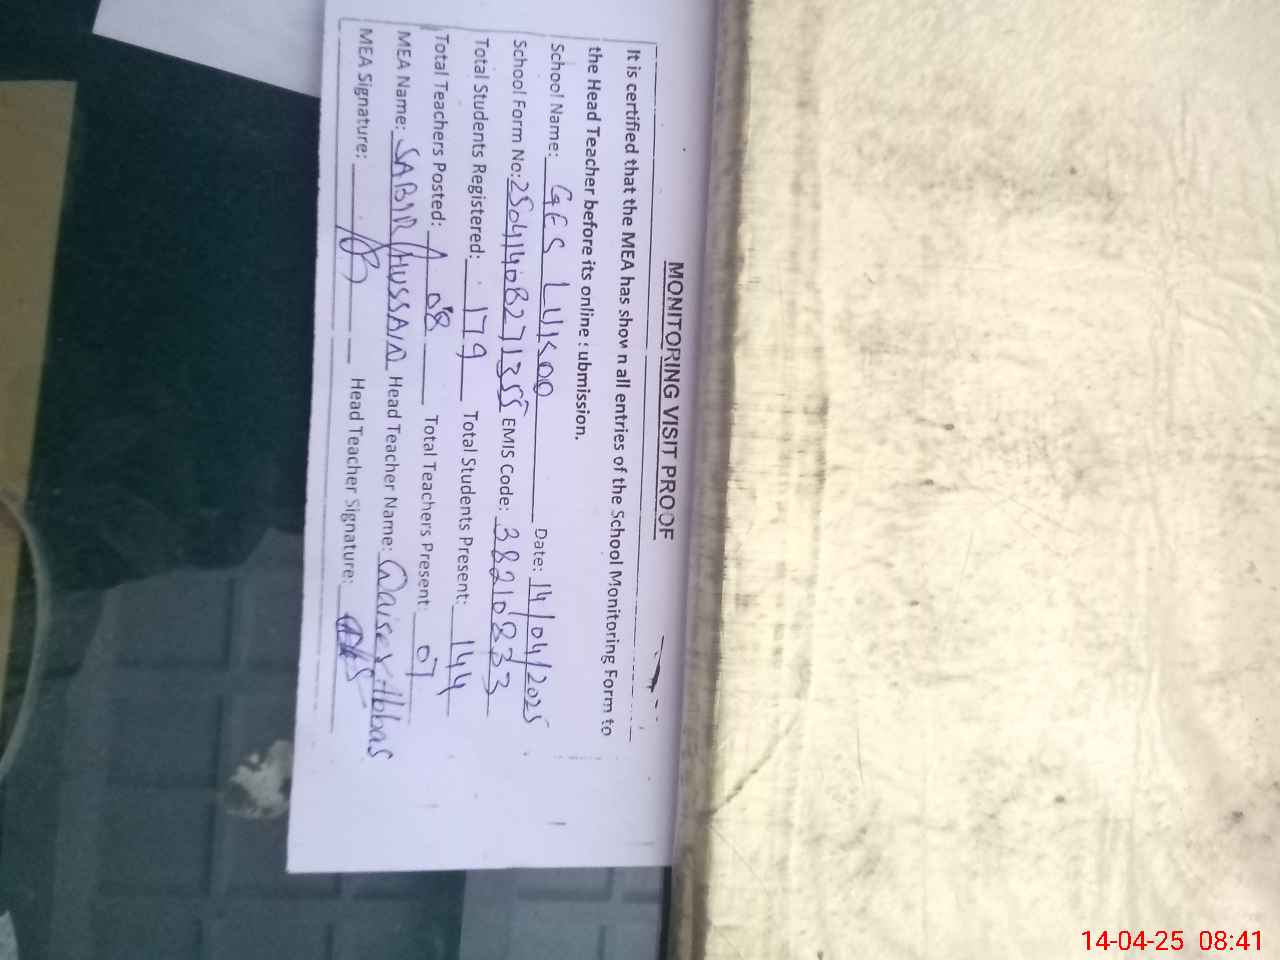 MONITORING VISIT PROOF
It is certified that the MEA has shown all entries of the School Monitoring Form to
the Head Teacher before its online submission.
School Name: GES LUKOO Date: 14/04/2025
School Form No: 25041408271355 EMIS Code: 38210833
Total Students Registered: 179 Total Students Present: 144
Total Teachers Posted: 08 Total Teachers Present: 07
MEA Name: SABIR HUSSAIN Head Teacher Name: Qaiser Abbas
MEA Signature: Head Teacher Signature:
14-04-25 08:41